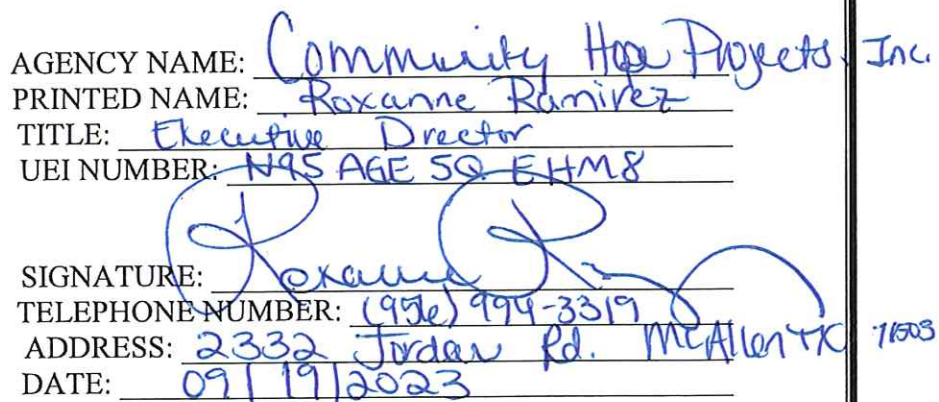 AGENCY NAME: Community Hope Projects, Inc.
PRINTED NAME: Roxanne Ramirez
TITLE: Executive Director
UEI NUMBER: N95 AGE 5Q EHM8
SIGNATURE: Roxanne R
TELEPHONE NUMBER: (956) 994-3319
ADDRESS: 2332 Jordan Rd. McAllen TX 78503
DATE: 09/19/2023